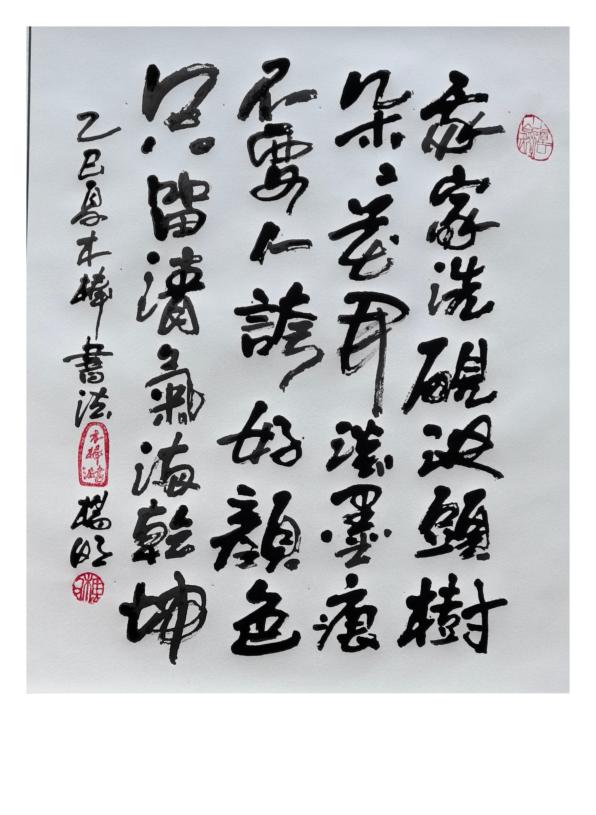 我家洗硯池頭樹
朵〻花開淡墨痕
不要人誇好顏色
只留清氣滿乾坤
乙巳夏木書法